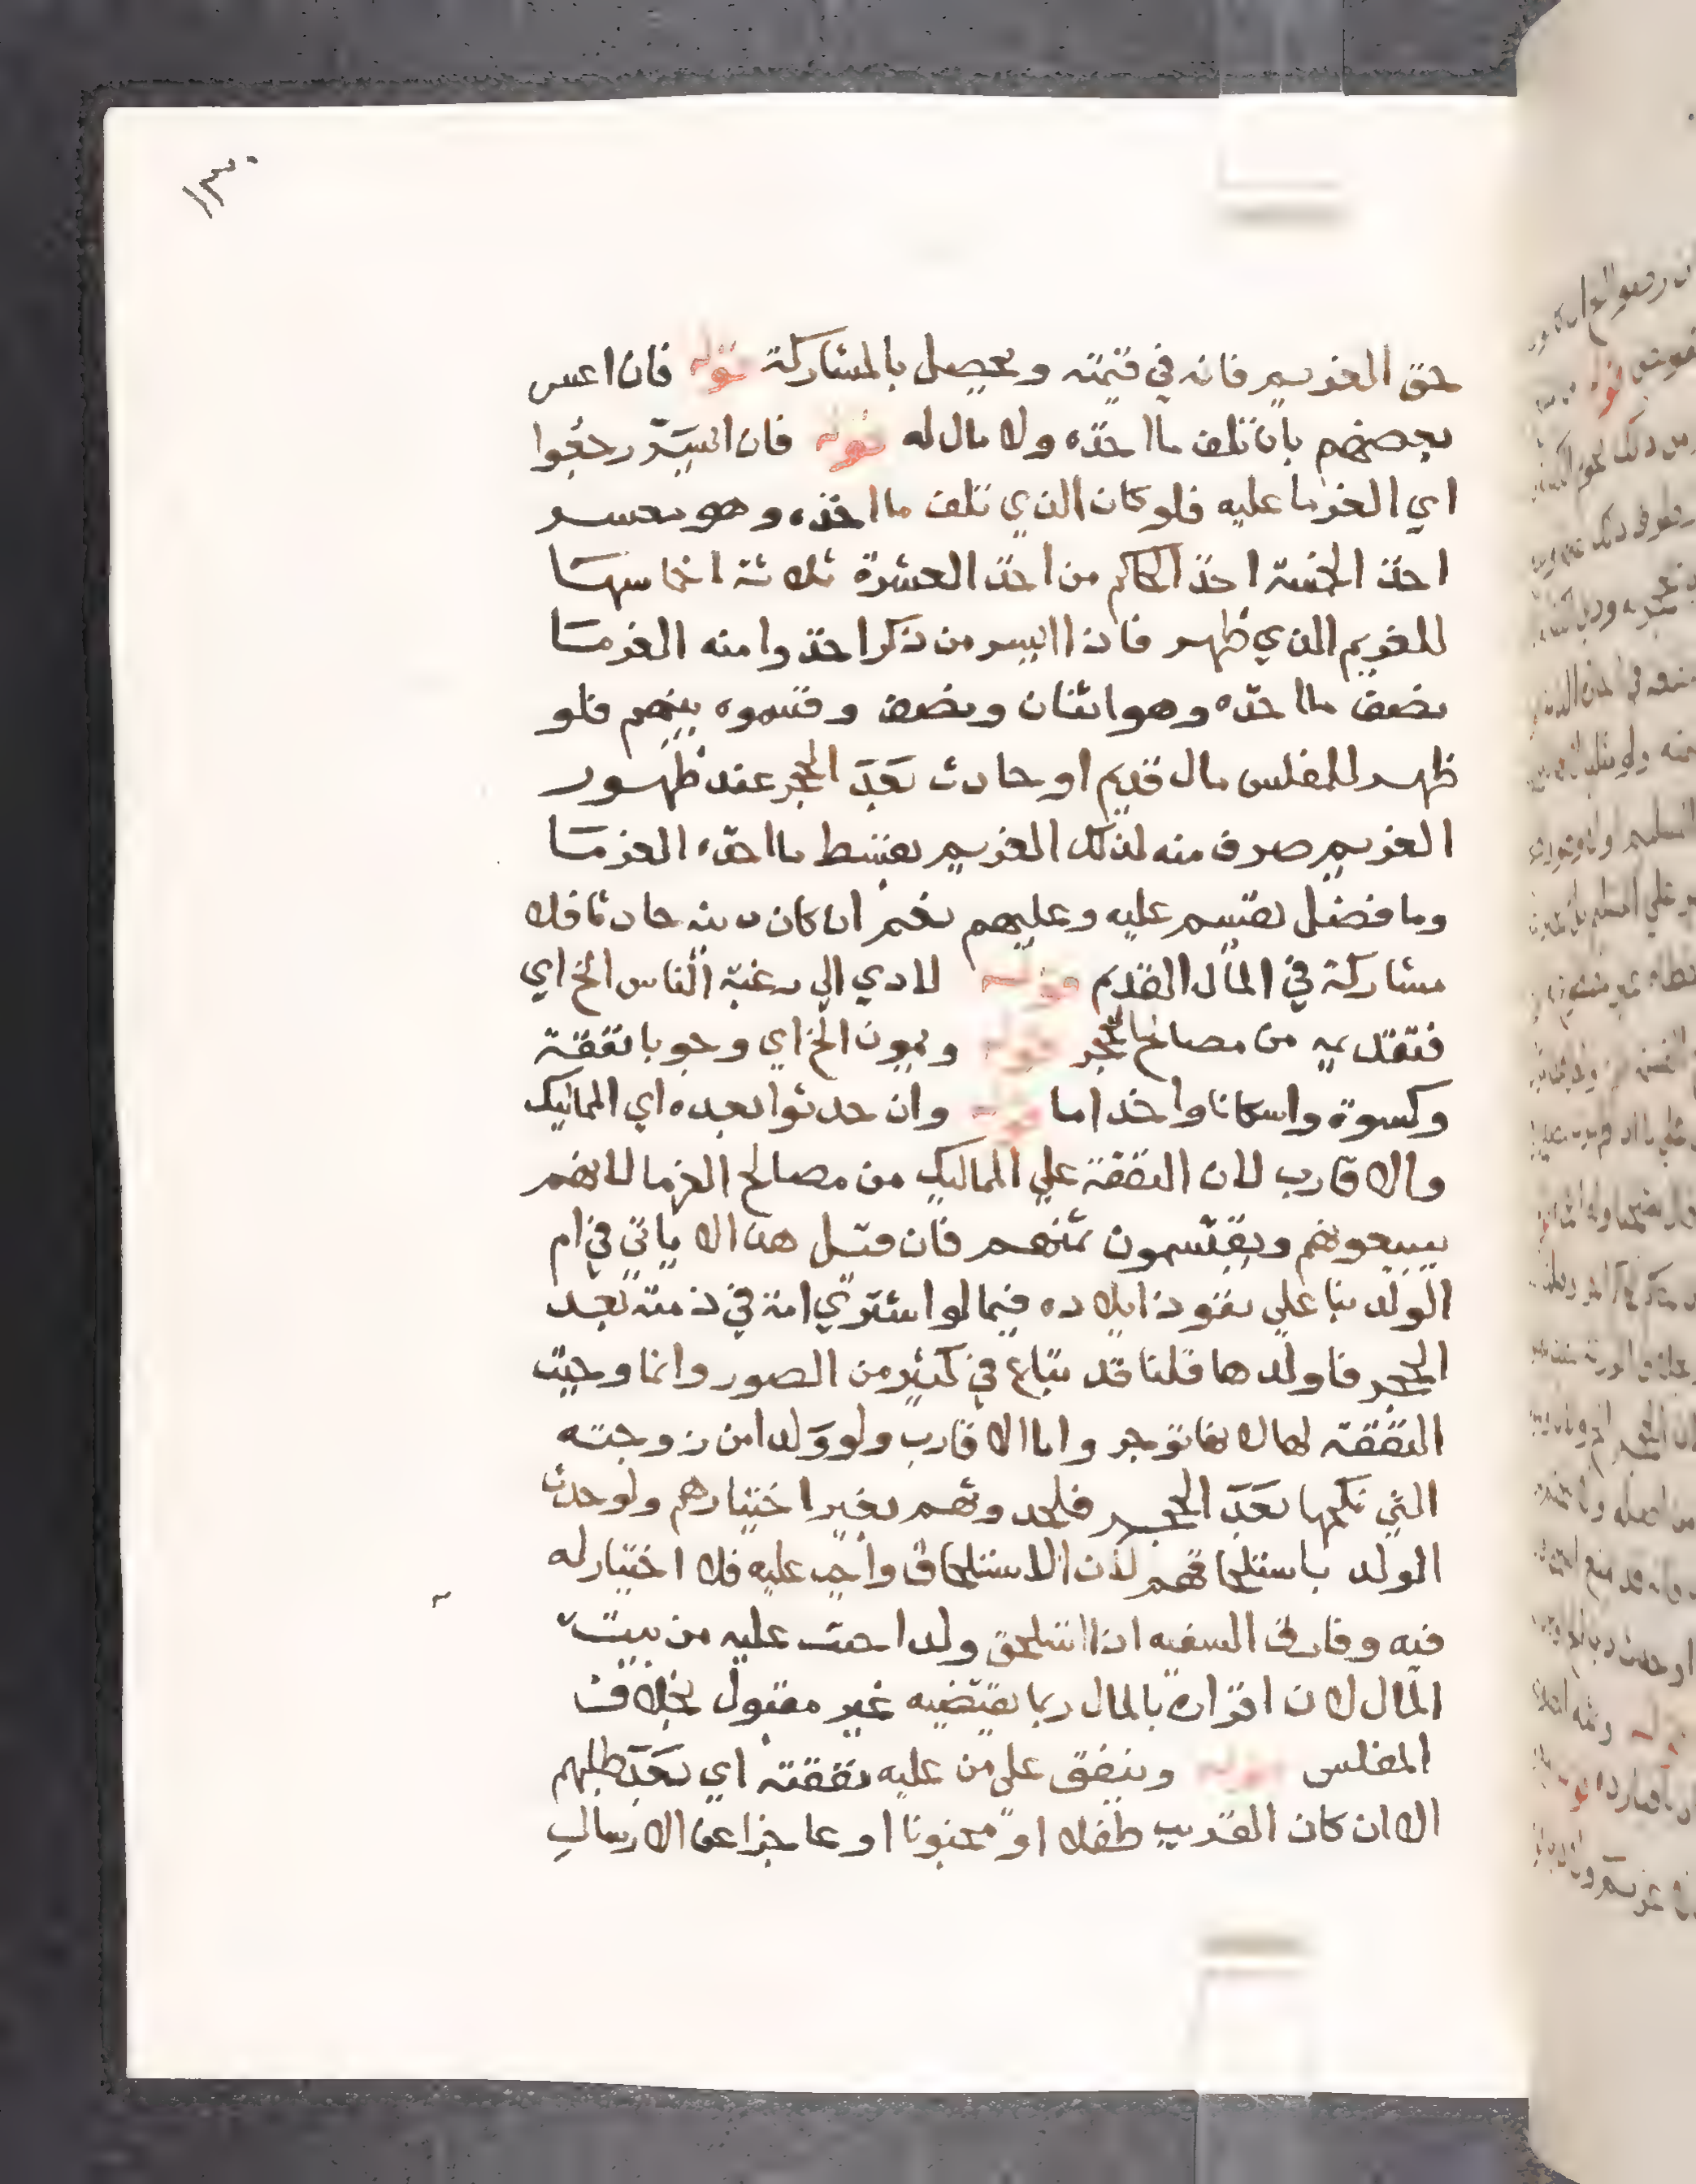 ١٣٠
حق الغريم فانه في قيمته ويحصل بالمشاركة قوله فان اعسر
بعضهم بان تلف ما اخذه ولا مال له قوله فان ايسر رجعوا
اي الغرما عليه فلو كان الذي تلف ما اخذه وهو معسر
اخذ الخمسة اخذ الحاكم من اخذ العشرة ثلاثة اخماسها
للغريم الذي ظهر فاذا ايسر من ذكر اخذوا منه الغرما
نصف ما اخذه وهو اثنان ونصف وقسموه بينهم فلو
ظهر للمفلس مال قديم او حادث بعد الحجر عند ظهور
الغريم صرف منه لذلك الغريم بقسط ما اخذه الغرما
وما فضل يقسم عليه وعليهم نعم ان كان دينه حادثا فلا
مشاركة في المال القديم قوله لادي الي رغبة الناس الخ اي
فتقديمه من مصالح الحجر قوله ويمون الخ اي وجوبا نفقة
وكسوة واسكانا واخداما قوله وان حدثوا بعده اي المماليك
والاقارب لان النفقة علي المماليك من مصالح الغرما لانهم
يبيعونهم ويقتسمون ثمنهم فان قيل هذا لا ياتي في ام
الولد بنا علي نفوذ ايلاده فيما لو اشتري امة في ذمته بعد
الحجر فاولدها قلنا قد تباع في كثير من الصور وانما وجبت
النفقة لها لانها توجر واما الاقارب ولو ولدا من زوجته
التي نكحها بعد الحجر فلحدوثهم بغير اختيارهم ولو حدث
الولد باستلحاقهم لان الاستلحاق واجب عليه فلا اختيار له
فيه وفارق السفيه اذا استلحق ولدا حيث عليه من بيت
المال لان اقراره بالمال ربما يقتضيه غير مقبول بخلاف
المفلس قوله وينفق علي من عليه نفقته اي بعد طلبهم
الا ان كان القريب طفلا او مجنونا او عاجزا عن الارسال